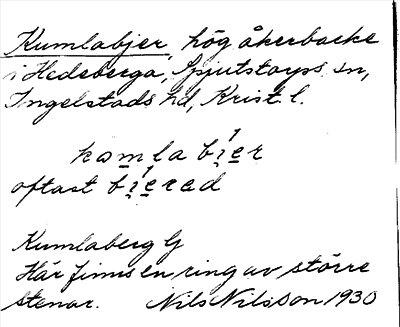 Kumlabjer, hög åkerbacke
i Hedeberga, Spjutstorps sn,
Ingelstads hd, Krist. l.
komla bi̯er
oftast bi̯erad
Kumlaberg G
Här finns en ring av större
stenar. Nils Nilsson 1930